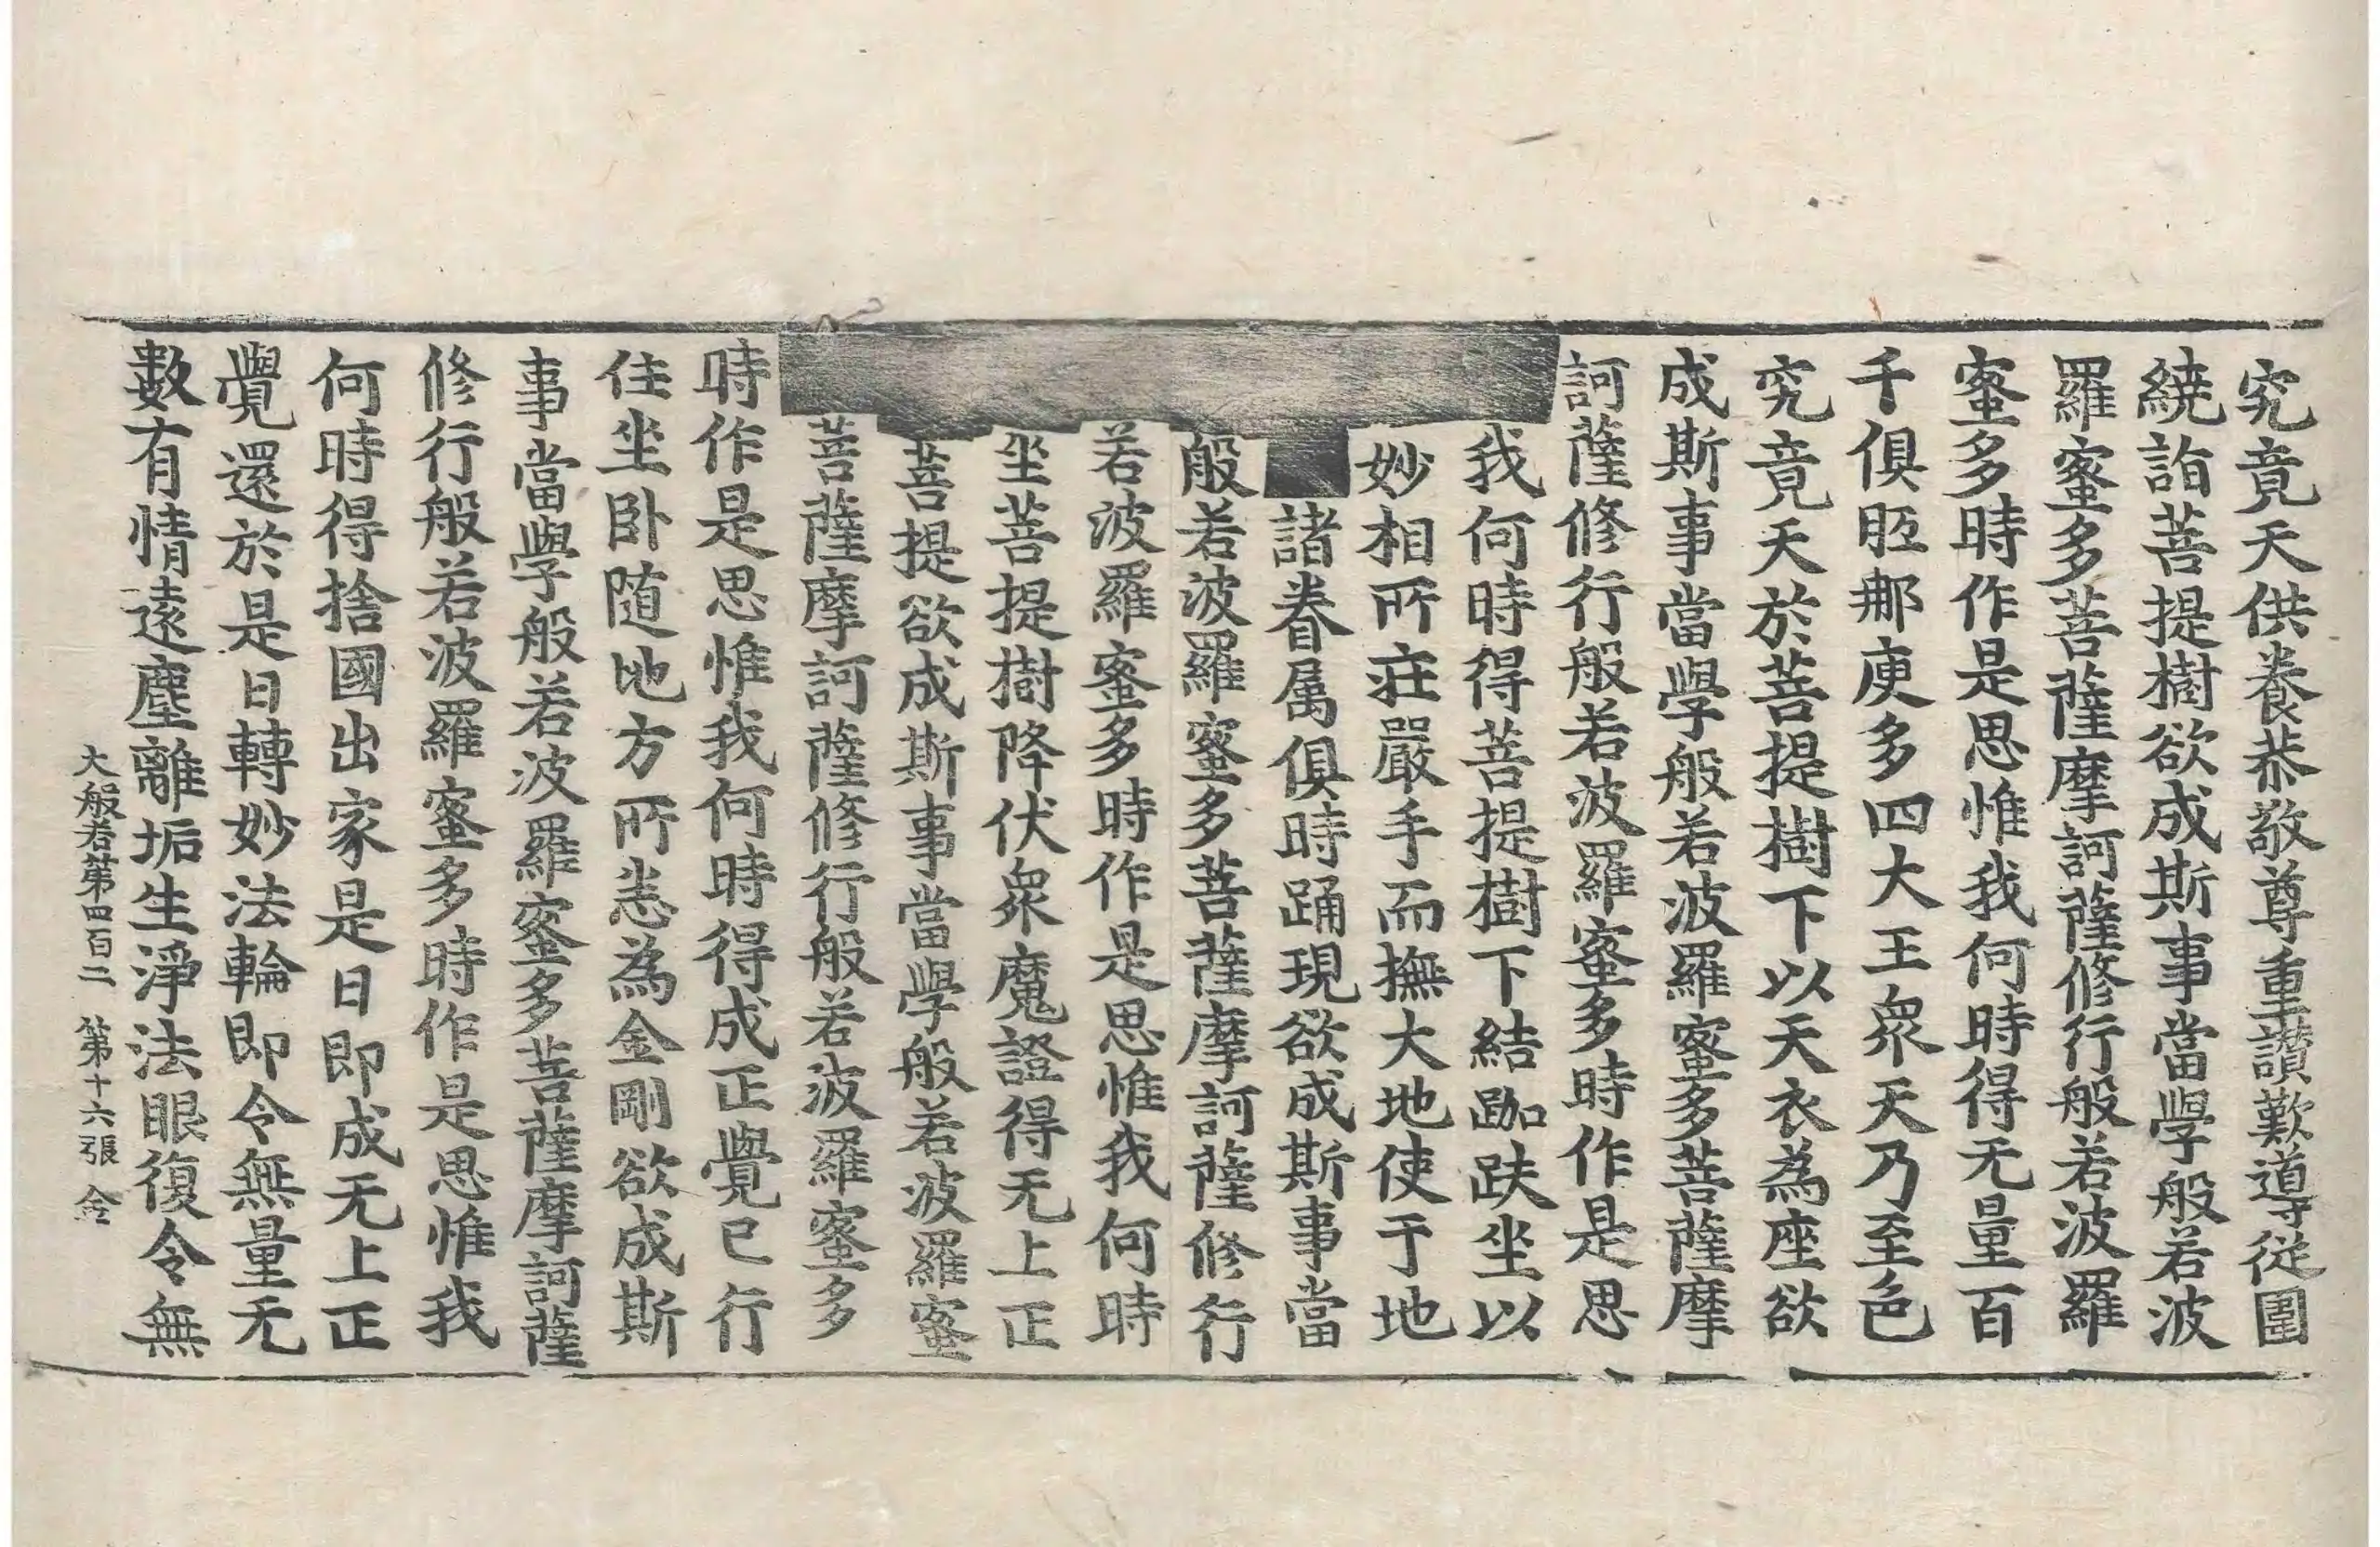 究竟天供養恭敬尊重讃歎導從圍
繞詣菩提樹欲成斯事當學般若波
羅蜜多菩薩摩訶薩修行般若波羅
蜜多時作是思惟我何時得无量百
千俱胝那庾多四大王衆天乃至色
究竟天於菩提樹下以天衣為座欲
成斯事當學般若波羅蜜多菩薩摩
訶薩修行般若波羅蜜多時作是思
我何時得菩提樹下結跏趺坐以
妙相所莊嚴手而撫大地使于地
諸眷属俱時踊現欲成斯事當
般若波羅蜜多菩薩摩訶薩修行
若波羅蜜多時作是思惟我何時
坐菩提樹降伏衆魔證得无上正
菩提欲成斯事當學般若波羅蜜
菩薩摩訶薩修行般若波羅蜜多
時作是思惟我何時得成正覺已行
住坐卧随地方所悉為金剛欲成斯
事當學般若波羅蜜多菩薩摩訶薩
修行般若波羅蜜多時作是思惟我
何時得捨國出家是日即成无上正
覺還於是日轉妙法輪即令無量无
數有情遠塵離垢生淨法眼復令無
大般若第四百二 第十六張 金